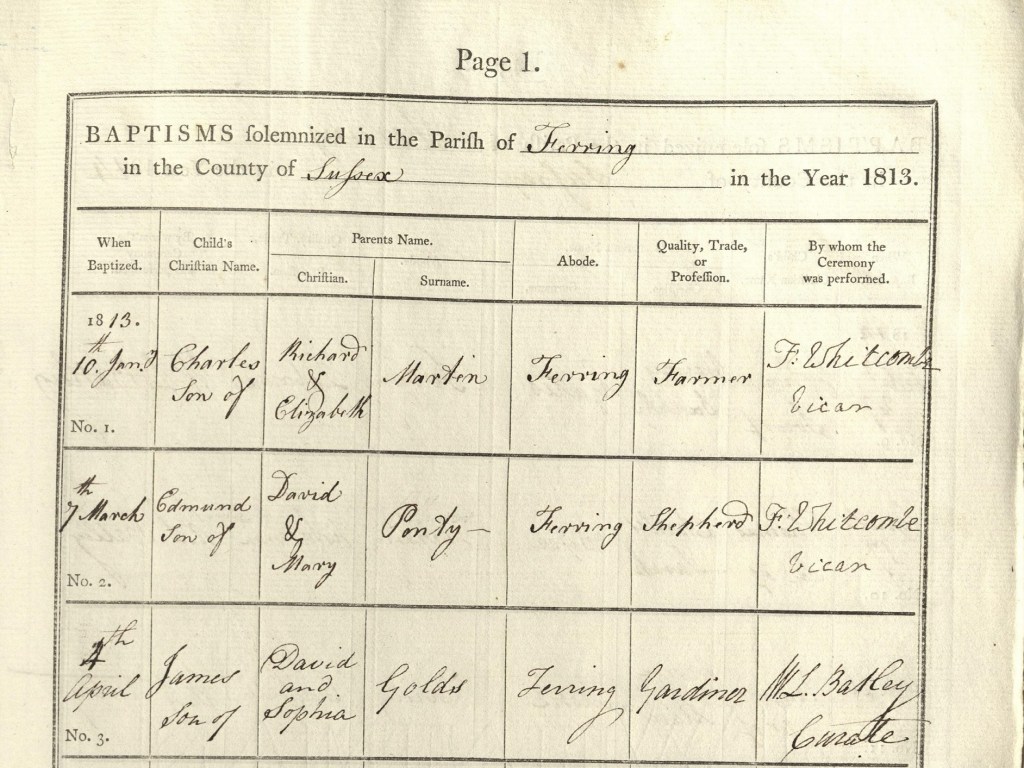 Page 1.
BAPTISMS ſolemnized in the Pariſh of Ferring
in the County of Suſsex in the Year 1813.
When Baptized.
Child's Chriſtian Name.
Parents Name.
Chriſtian.
Surname.
Abode.
Quality, Trade, or Profeſſion.
By whom the Ceremony was performed.
1813.
10.th Jan.y
No. 1.
Charles
Son of
Richard
&
Elizabeth
Martin
Ferring
Farmer
F. Whitcombe
Vicar
7th March
No. 2.
Edmund
Son of
David
&
Mary
Ponty
Ferring
Shepherd
F. Whitcombe
Vicar
4th
April
No. 3.
James
Son of
David
and
Sophia
Golds
Ferring
Gardiner
W L. Batley
Curate